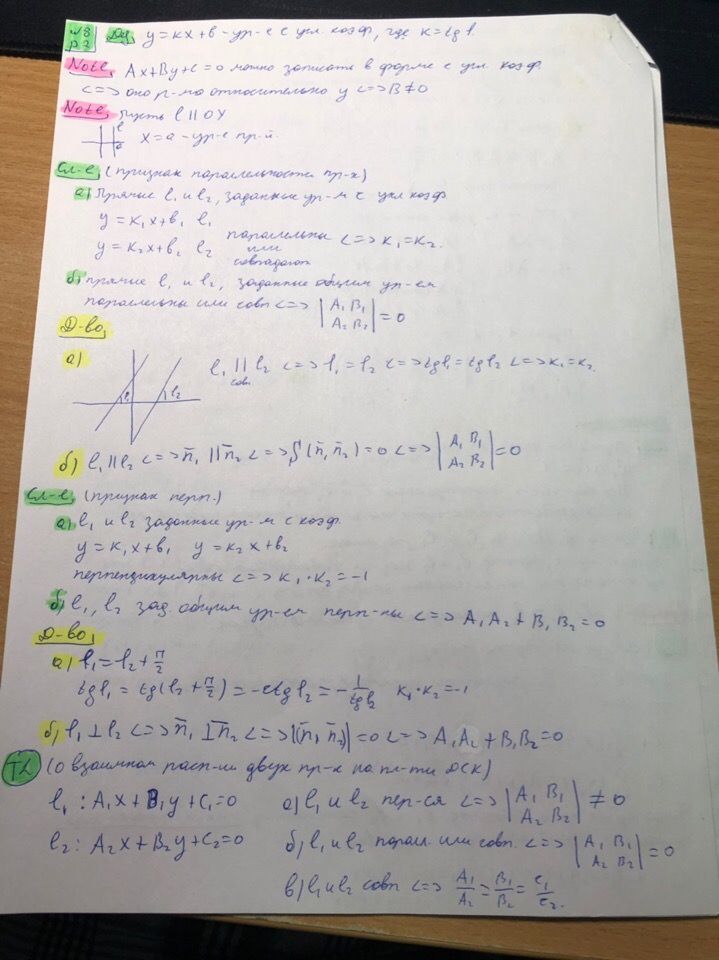 №8 Def y = kx + b - ур-е с угл. коэф., где k = tg φ.
p 2
Note, Ax + By + C = 0 можно записать в форме с угл. коэф.
<=> оно р-мо относительно y <=> B ≠ 0
Note, Пусть l || OY
x = a - ур-е пр-й.
Сл-е, (признак параллельности пр-х)
а) Прямые l₁ и l₂, заданные ур-м с угл коэф
y = k₁x + b₁ l₁
y = k₂x + b₂ l₂ параллельны или совпадают <=> k₁ = k₂.
б) прямые l₁ и l₂, заданные общим ур-ем
параллельны или совп <=> |A₁ B₁; A₂ B₂| = 0
Д-во,
а) l₁ || l₂ <=> φ₁ = φ₂ <=> tg φ₁ = tg φ₂ <=> k₁ = k₂.
совп.
φ₁ φ₂
б) l₁ || l₂ <=> n̄₁ || n̄₂ <=> S(n̄₁, n̄₂) = 0 <=> |A₁ B₁; A₂ B₂| = 0
Сл-е, (признак перп.)
а) l₁ и l₂ заданные ур-м с коэф.
y = k₁x + b₁ y = k₂x + b₂
перпендикулярны <=> k₁ · k₂ = -1
б) l₁, l₂ зад. общим ур-ем перп-ны <=> A₁A₂ + B₁B₂ = 0
Д-во,
а) φ₁ = φ₂ + π/2
tg φ₁ = tg(φ₂ + π/2) = -ctg φ₂ = -1/tg φ₂ k₁ · k₂ = -1
б) l₁ ⊥ l₂ <=> n̄₁ ⊥ n̄₂ <=> |(n̄₁, n̄₂)| = 0 <=> A₁A₂ + B₁B₂ = 0
(О взаимном расп-ии двух пр-х на пл-ти ДСК)
l₁ : A₁x + B₁y + C₁ = 0 а) l₁ и l₂ пер-ся <=> |A₁ B₁; A₂ B₂| ≠ 0
l₂ : A₂x + B₂y + C₂ = 0 б) l₁ и l₂ парал. или совп. <=> |A₁ B₁; A₂ B₂| = 0
в) l₁ и l₂ совп <=> A₁/A₂ = B₁/B₂ = C₁/C₂.